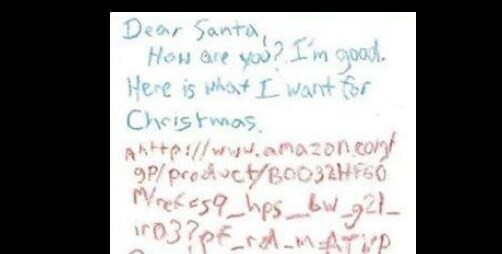 Dear Santa,
How are you? I'm good.
Here is what I want for
Christmas.
http://www.amazon.com/
gp/product/B0032HF60
M/ref=s9_hps_bw_g21_
ir03?pf_rd_m=ATVP